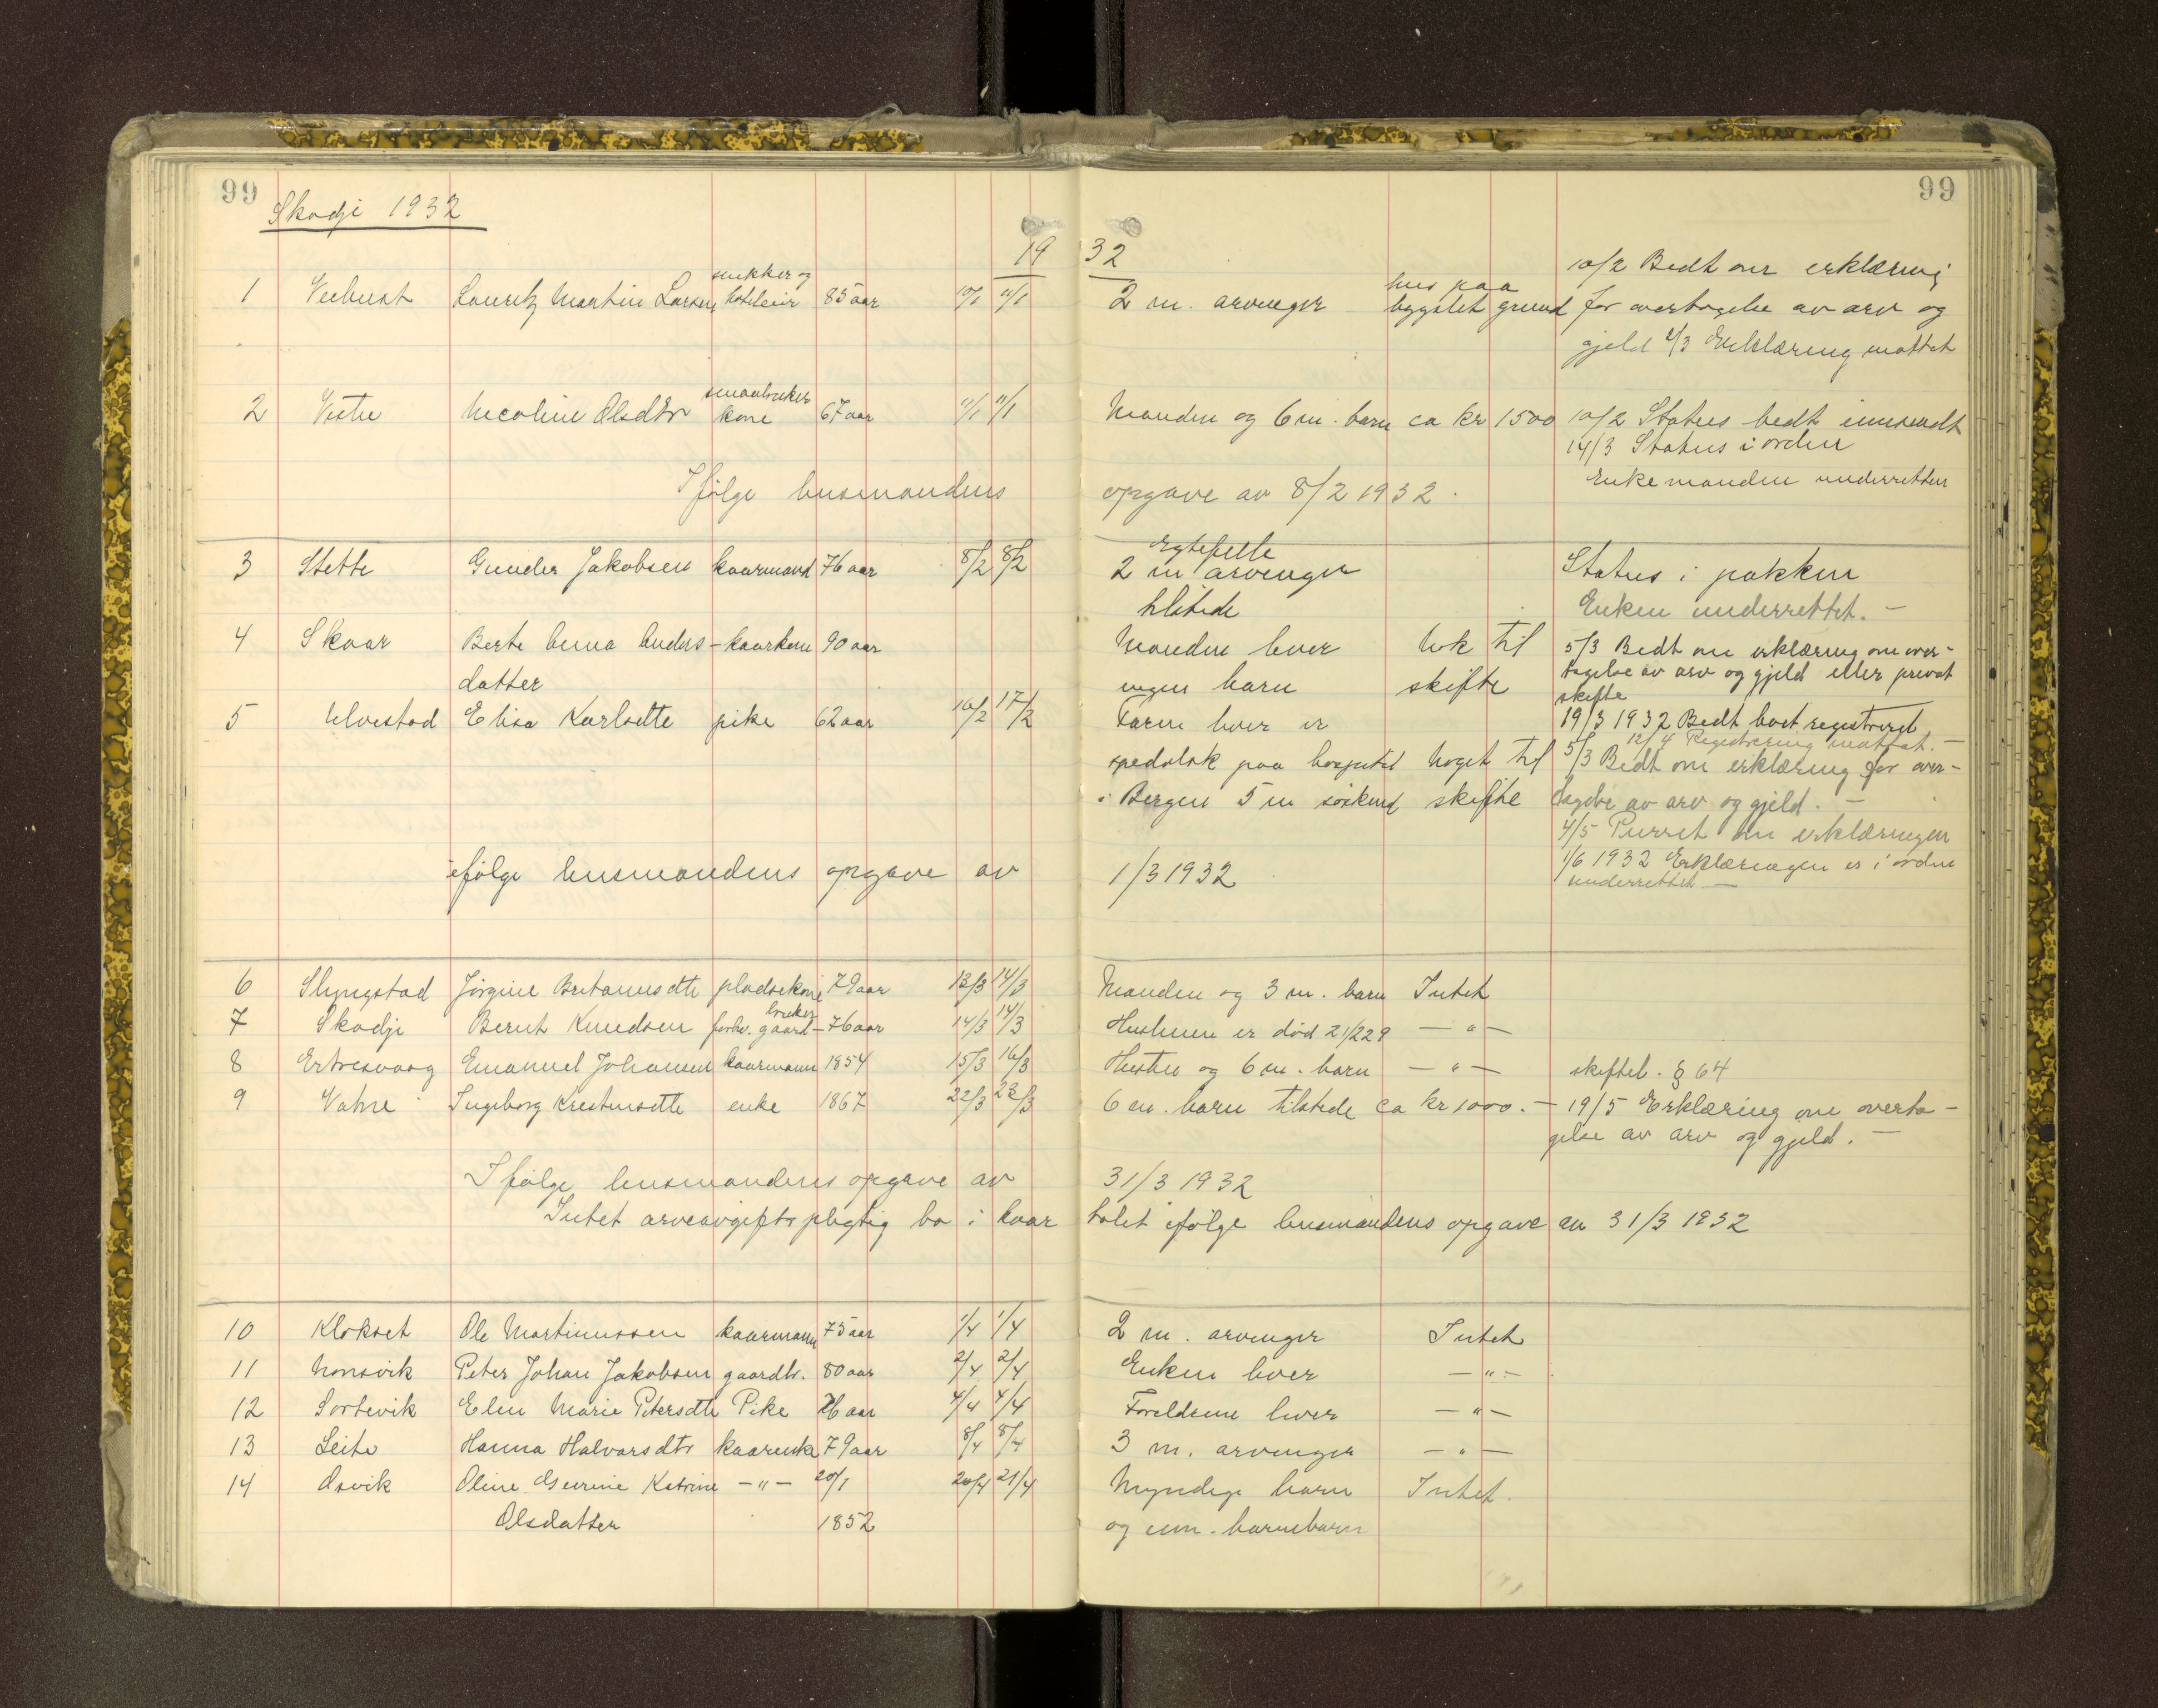 99
99
Skodje 1932
19 32
snekker og
hus paa
10/2 Bedt om erklæring
1 Vebust Lauritz Martin Larsen hoteleier 85 aar 10/1 11/1 2 m. arvenger bygslet grund for overtagelse av arv og
gjeld 4/3 Erklæring mottat
smaabruker
2 Vestre Nicoline Olsdtr kone 67 aar 11/1 11/1 Manden og 6 m. barn ca kr 1500 10/2 Status bedt innsendt
14/3 Status i orden
Enkemanden underrettet
Ifølge lensmandens opgave av 8/2 1932.
egtefelle
3 Stette Gunder Jakobsen kaarmand 76 aar 8/2 8/2 2 m arvenger Status i pakken
tilstede Enken underrettet. —
4 Skaar Berte Anna Anders- kaarkone 90 aar Manden lever nok til 5/3 Bedt om erklæring om over-
datter ingen barn skifte tagelse av arv og gjeld eller privat
skifte
5 Ulvestad Elisa Karlsdtte pike 62 aar 16/2 17/2 Faren lever er 19/3 1932 Bedt boet registreret
12/4 Registrering mottat. —
spedalsk paa hospital noget til 5/3 Bedt om erklæring for over-
i Bergen 5 m søskend skifte tagelse av arv og gjeld. —
4/5 Purret om erklæringen
1/6 1932 Erklæringen es i orden
underrettet —
ifølge lensmandens opgave av 1/3 1932
6 Slyngstad Jørgine Bertanusdtte pladsekone 79 aar 13/3 14/3 Manden og 3 m. barn Intet
bruker
7 Skodje Bernt Knudsen forhv. gaard- 76 aar 14/3 14/3 Hustruen er død 21/2 29 — " —
8 Ertresvaag Emanuel Johansen kaarmann 1854 15/3 16/3 Hustru og 6 m. barn — " — skiftel. § 64
9 Vatne Ingeborg Krestensdtte enke 1867 22/3 23/3 6 m. barn tilstede ca kr 1000. — 19/5 Erklæring om overta-
gelse av arv og gjeld. —
Ifølge lensmandens opgave av 31/3 1932
Intet arveavgiftspligtig bo i kvartalet ifølge lensmandens opgave av 31/3 1932
10 Klokset Ole Martinussen kaarmann 75 aar 1/4 1/4 2 m. arvenger Intet
11 Nonsvik Peter Johan Jakobsen gaardbr. 80 aar 2/4 2/4 Enken lever — " —
12 Sortevik Elen Marie Petersdtte Pike 26 aar 4/4 4/4 Foreldrene lever — " —
13 Leite Hanna Halvorsdtr kaarenke 79 aar 8/4 8/4 3 m. arvenger — " —
14 Osvik Oline Katrine — " — 20/1 20/4 21/4 Myndige barn Intet.
Olsdatter 1852 og um. barnebarn